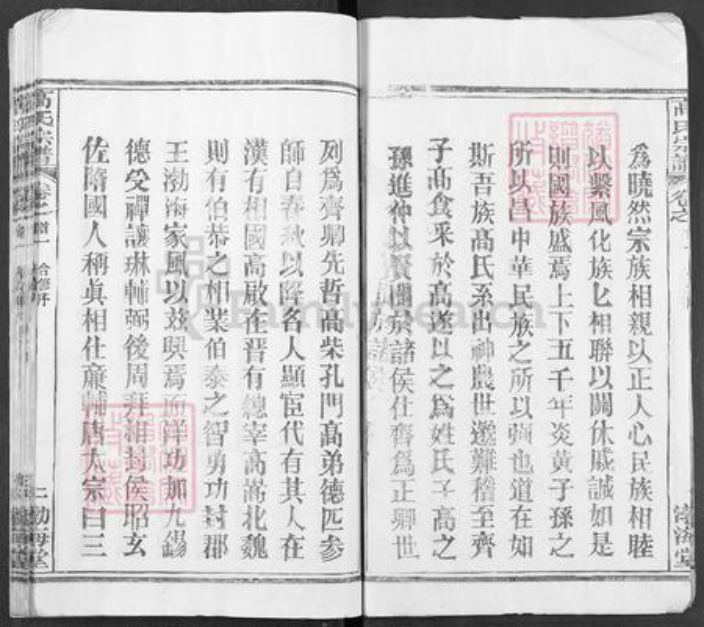 為曉然宗族相親以正人心民族相睦
以繫風化族匕相聯以關休戚誠如是
則國族盛焉上下五千年炎黃子孫之
所以昌中華民族之所以強也道在如
斯吾族高氏系出神農世邈難稽至齊
子高食采於高遂以之為姓氏子高之
孫進仲以賢聞於諸侯仕齊為正卿世
列為齊卿先哲高柴孔門高弟德匹參
師自春秋以降各人顯宦代有其人在
漢有相國高啟在晉有總宰高嵩北魏
則有伯恭之相業伯泰之智勇功封郡
王渤海家風以茲興焉而洋功加九錫
德受禪讓琳輔弼後周拜相封侯昭玄
佐隋國人稱真相仕廉輔唐太宗曰三
高氏宗譜
卷之
渤海堂
高氏宗譜
卷
二渤海堂
FamilySearch